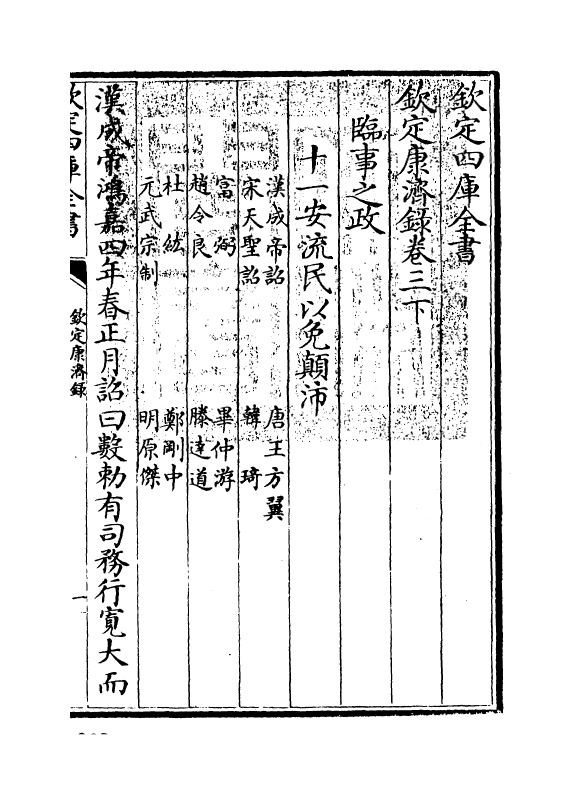 欽定四庫全書
欽定康濟録卷三下
臨事之政
十一安流民以免顛沛
漢成帝詔 唐王方翼
宋天聖詔 韓琦
富弼 畢仲游
趙令良 滕達道
杜紘 鄭剛中
元武宗制 明原傑
漢成帝鴻嘉四年春正月詔曰數勅有司務行寬大而
欽定四庫全書
欽定康濟録
一